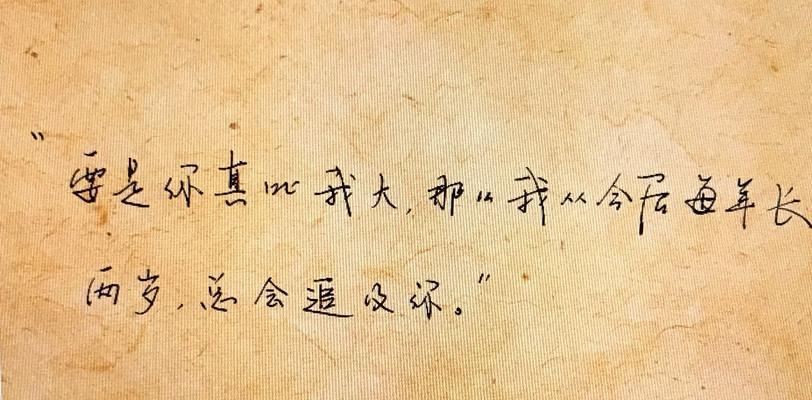 “要是你真比我大,那么我从今后每年长
两岁,总会追及你。”